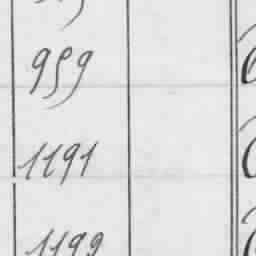 959
1191
1199